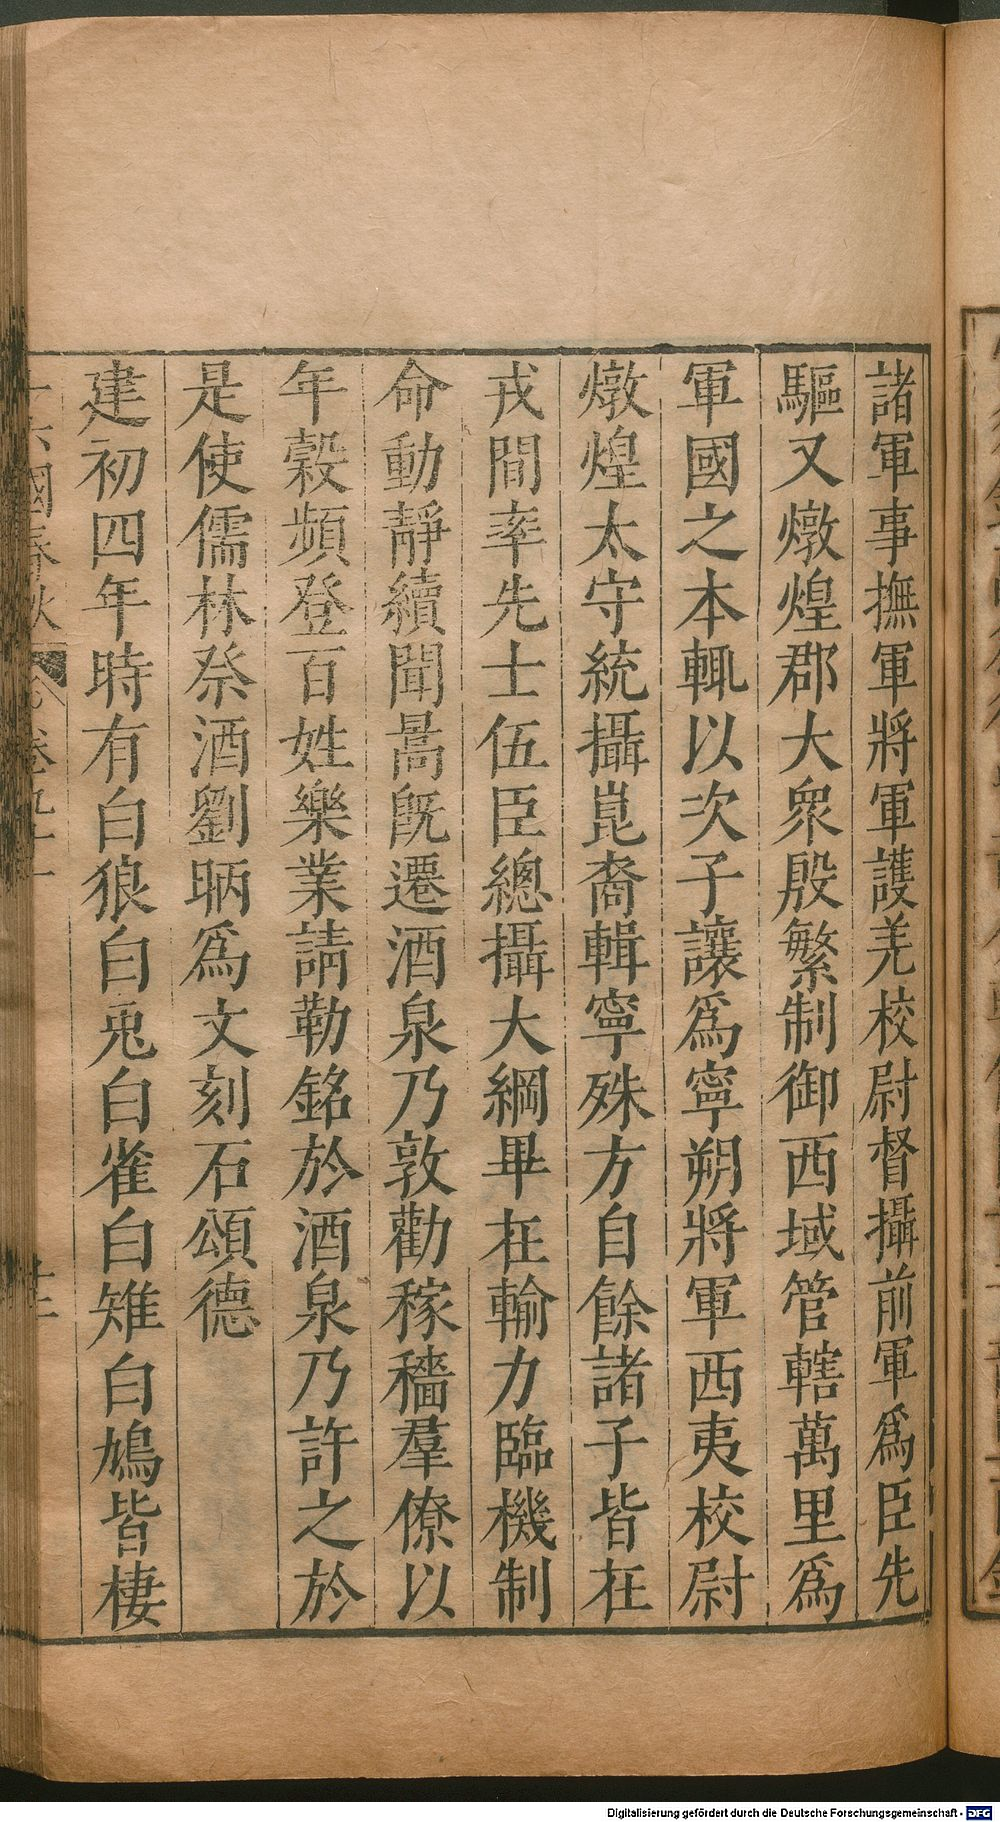 諸軍事撫軍將軍護羌校尉督攝前軍爲臣先
驅又燉煌郡大衆殷繁制御西域管轄萬里爲
軍國之本輒以次子讓爲寧朔將軍西夷校尉
燉煌太守統攝崑裔輯寧殊方自餘諸子皆在
戎間率先士伍臣總攝大綱畢在輸力臨機制
命動靜續聞暠旣遷酒泉乃敦勸稼穡羣僚以
年穀頻登百姓樂業請勒銘於酒泉乃許之於
是使儒林祭酒劉昞爲文刻石頌德
建初四年時有白狼白兎白雀白雉白鳩皆棲
十六國春秋 卷九十一
Digitalisierung gefördert durch die Deutsche Forschungsgemeinschaft - DFG